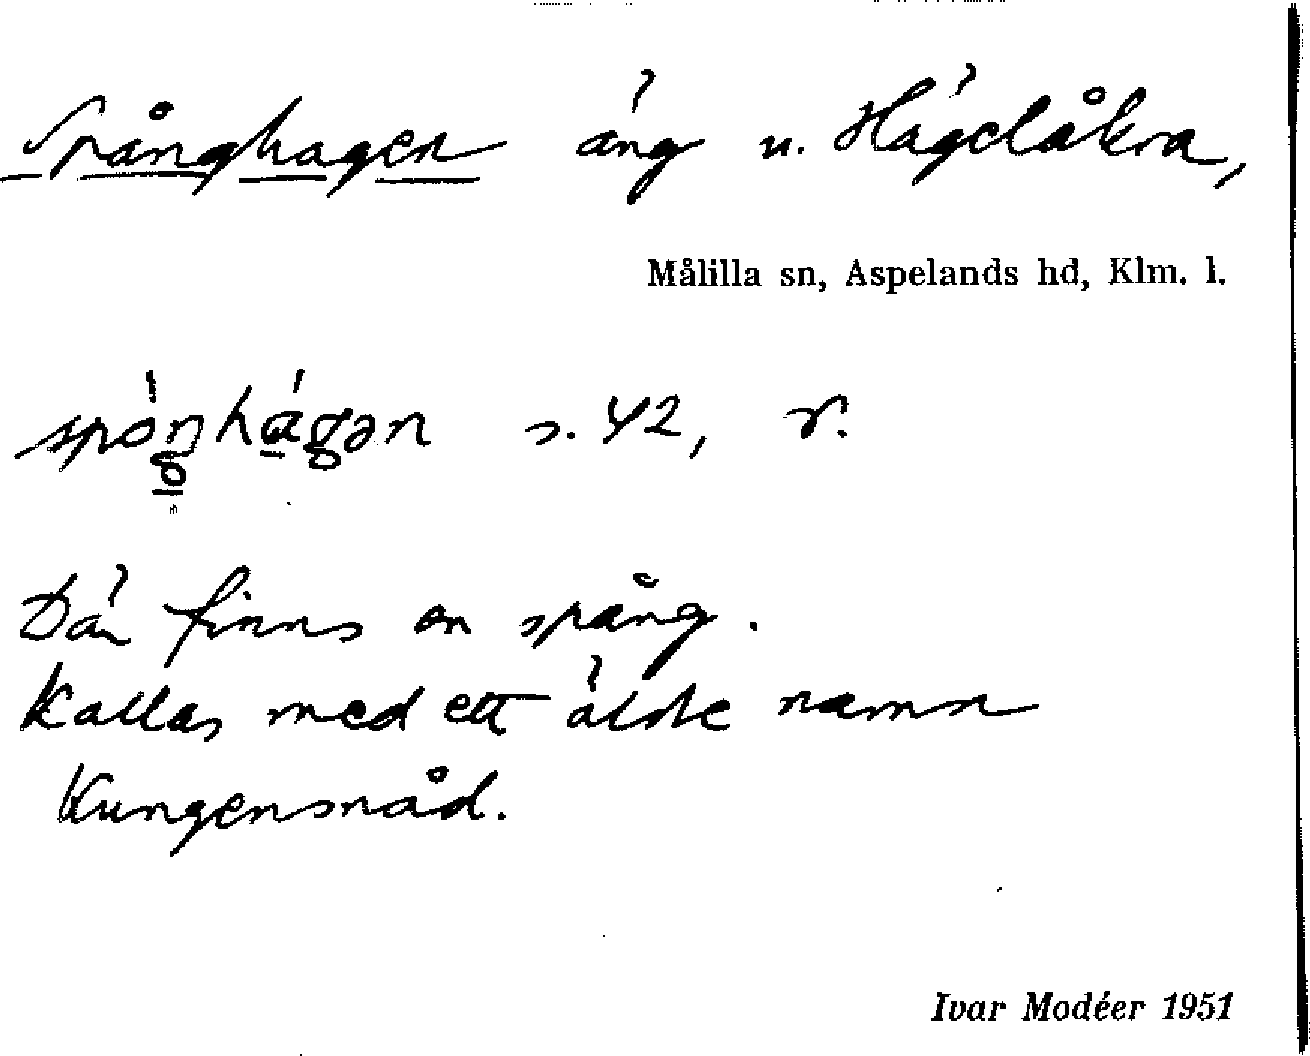 Spånghagen äng u. Hägelåkra,
Målilla sn, Aspelands hd, Klm. l.
s. 42, r.
Där finns en spång.
Kallas med ett äldre namn
Kungensnåd.
Ivar Modéer 1951